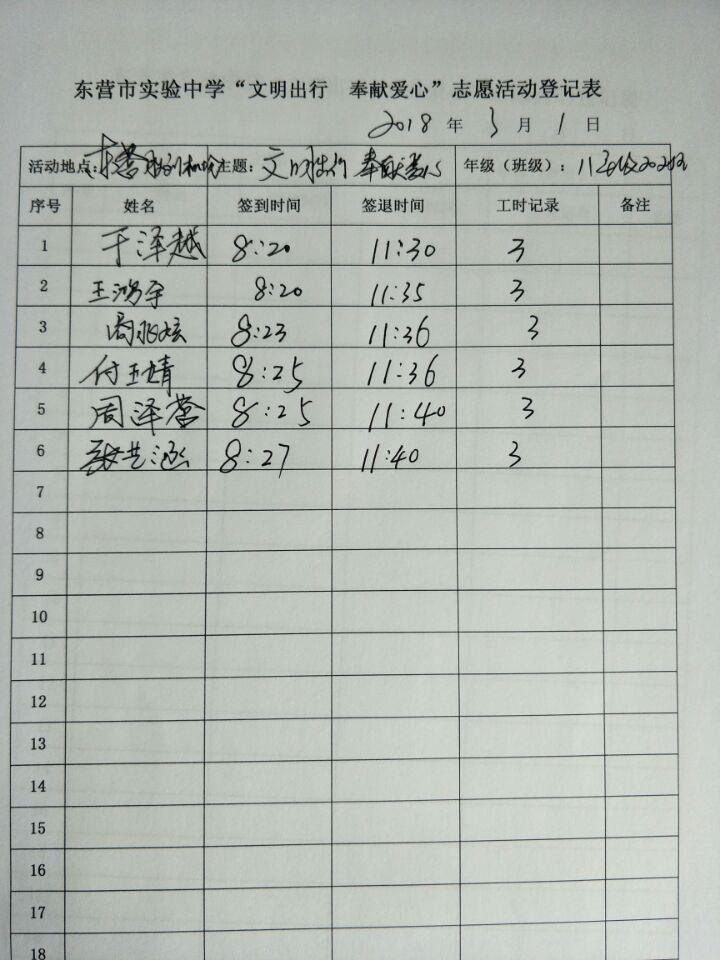 东营市实验中学“文明出行　奉献爱心”志愿活动登记表
2018 年 3 月 1 日
活动地点：东营胜利机场 主题：文明出行 奉献爱心 年级（班级）：
序号 姓名 签到时间 签退时间 工时记录 备注
1 于泽越 8:20 11:30 3
2 王鸿宇 8:20 11:35 3
3 周 8:23 11:36 3
4 付玉婧 8:25 11:36 3
5 周泽营 8:25 11:40 3
6 张艺涵 8:27 11:40 3
7
8
9
10
11
12
13
14
15
16
17
18